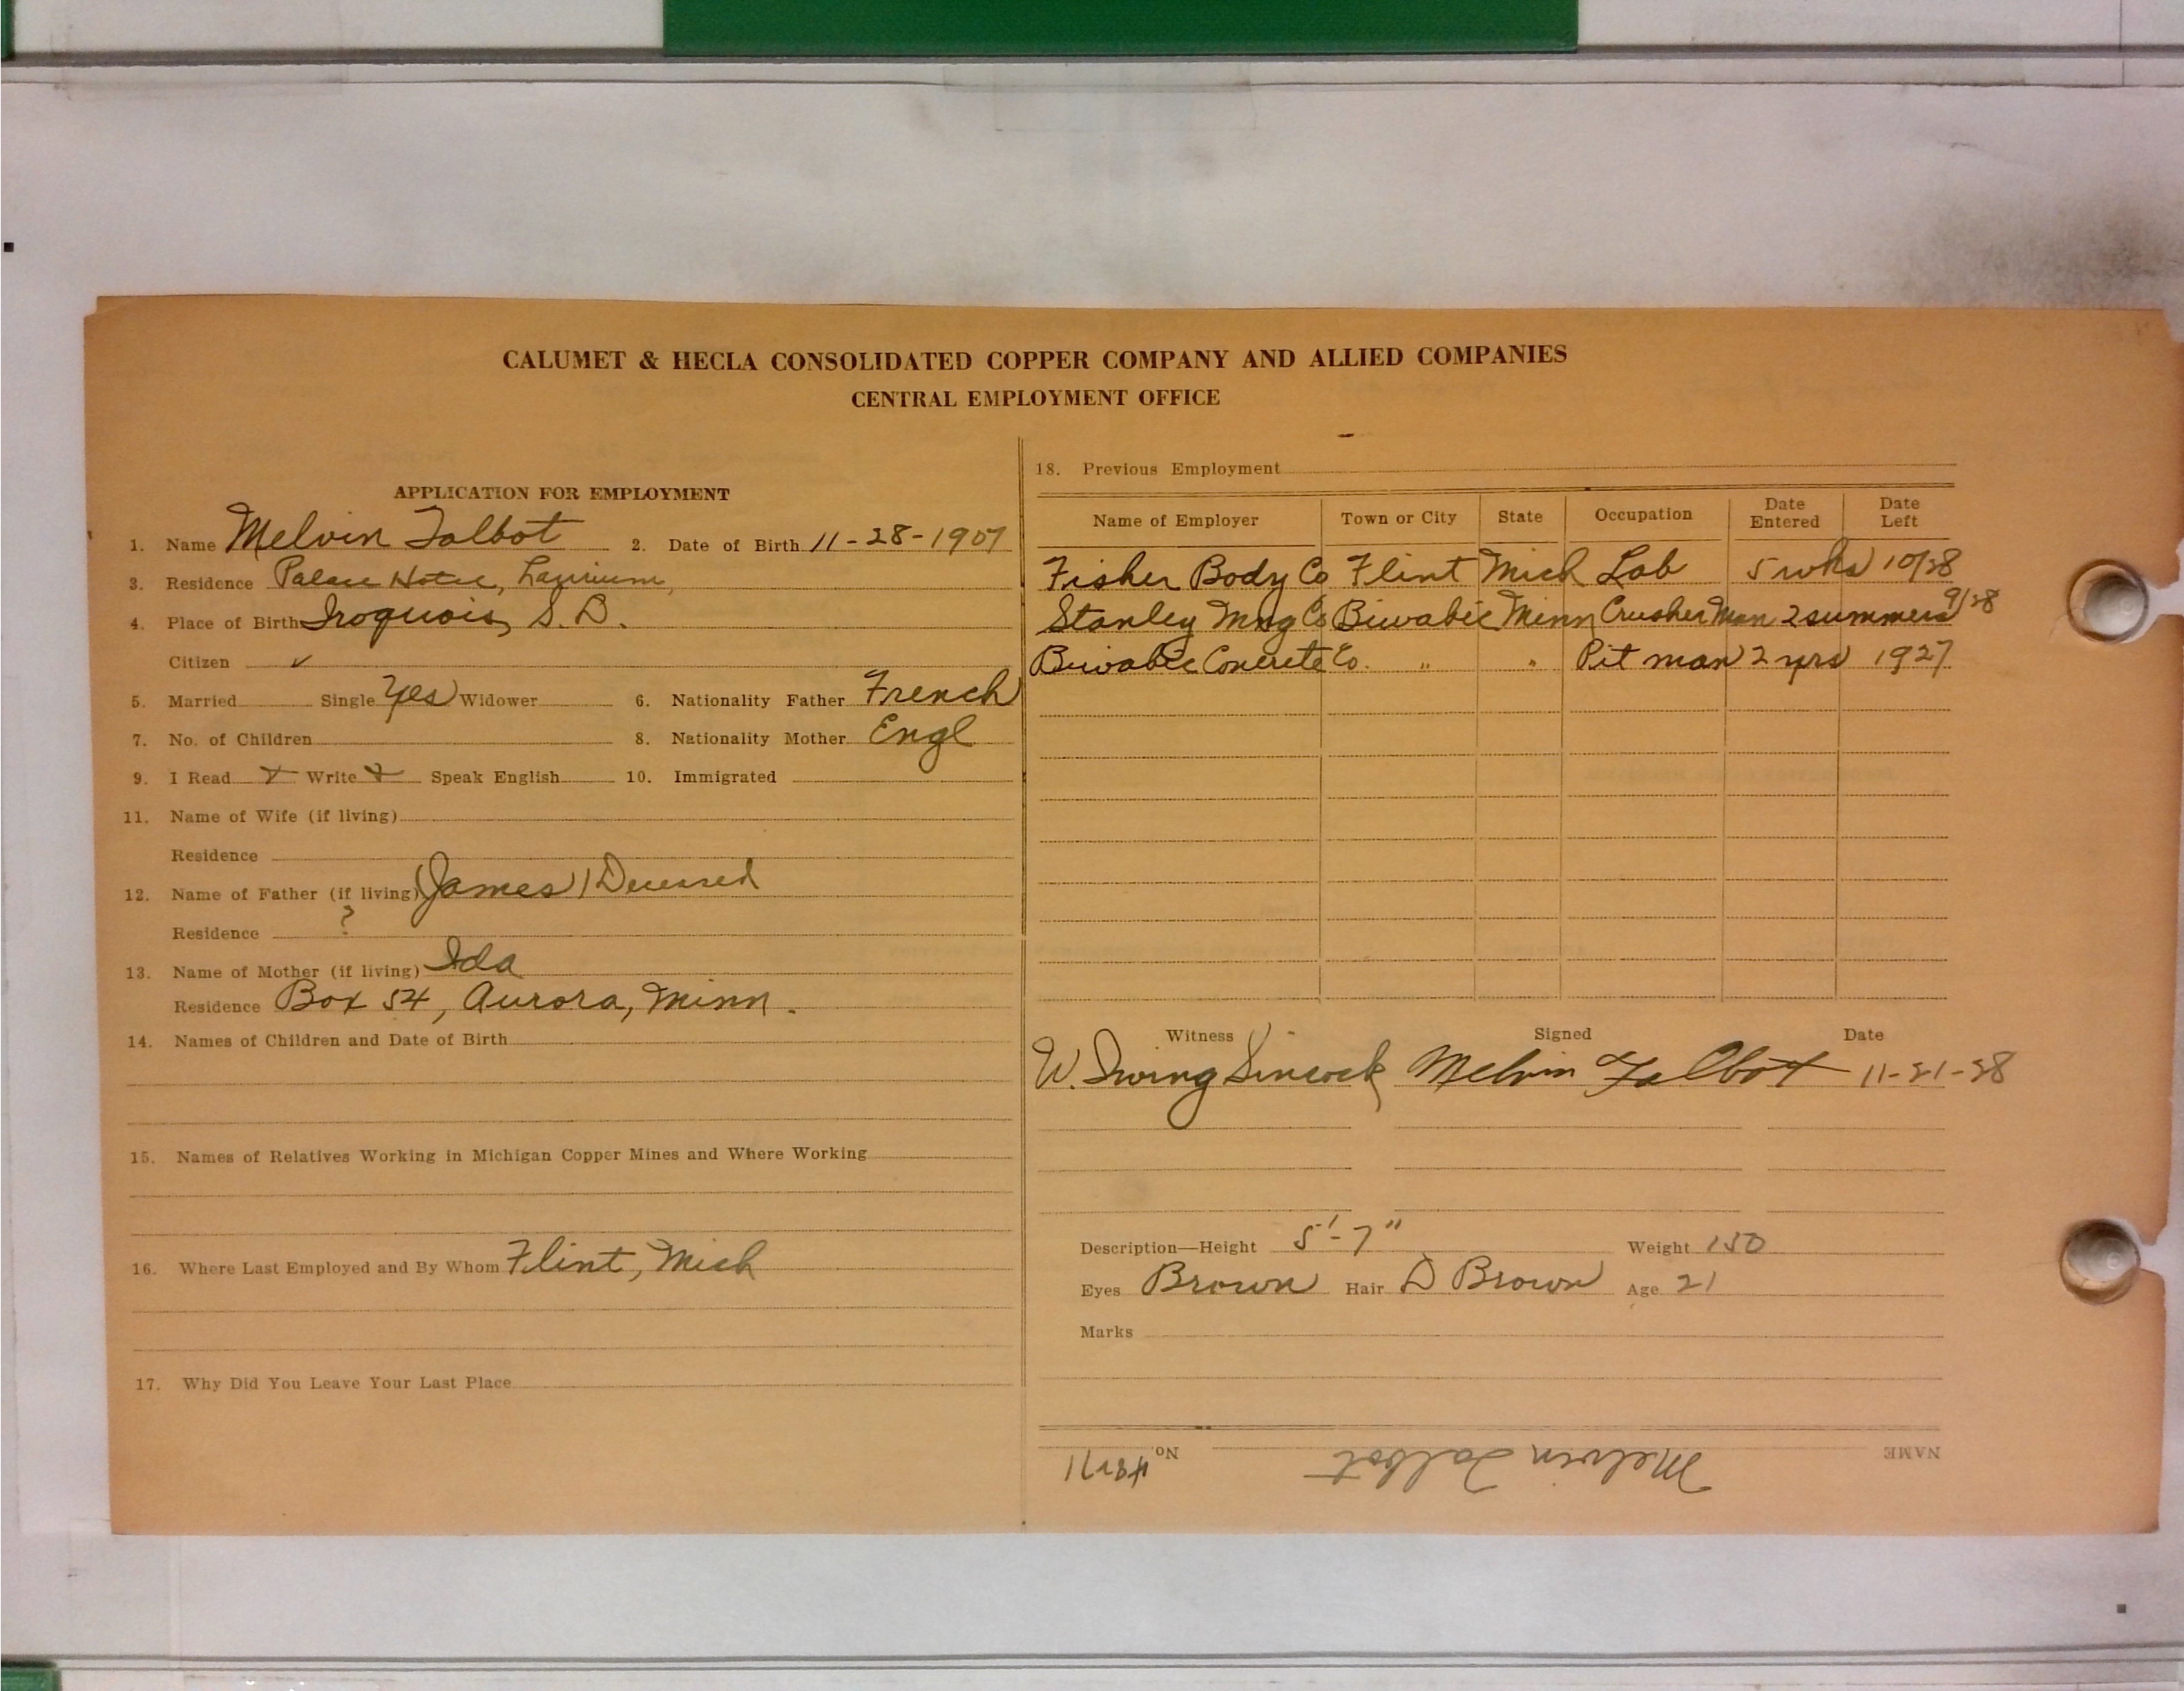 CALUMET & HECLA CONSOLIDATED COPPER COMPANY AND ALLIED COMPANIES
CENTRAL EMPLOYMENT OFFICE
APPLICATION FOR EMPLOYMENT
1. Name Melvin Talbot 2. Date of Birth 11-28-1907
3. Residence Palace Hotel, Laurium,
4. Place of Birth Iroquois, S. D.
Citizen ✓
5. Married Single Yes Widower 6. Nationality Father French
7. No. of Children 8. Nationality Mother Engl
9. I Read Write Speak English 10. Immigrated
11. Name of Wife (if living)
Residence
12. Name of Father (if living) (James) Deceased
Residence ?
13. Name of Mother (if living) Ida
Residence Box 54, Aurora, Minn.
14. Names of Children and Date of Birth
15. Names of Relatives Working in Michigan Copper Mines and Where Working
16. Where Last Employed and By Whom Flint, Mich
17. Why Did You Leave Your Last Place
18. Previous Employment
Name of Employer Town or City State Occupation Date Entered Date Left
Fisher Body Co Flint Mich Lab 5 wks 10/28
Stanley Mng Co Biwabic Minn Crusher Man 2 summers 9/28
Biwabic Concrete Co. " " Pit man 2 yrs 1927
Witness Signed Date
W. Irving Sincock Melvin Talbot 11-21-28
Description—Height 5'-7" Weight 150
Eyes Brown Hair D Brown Age 21
Marks
NAME Melvin Talbot No.